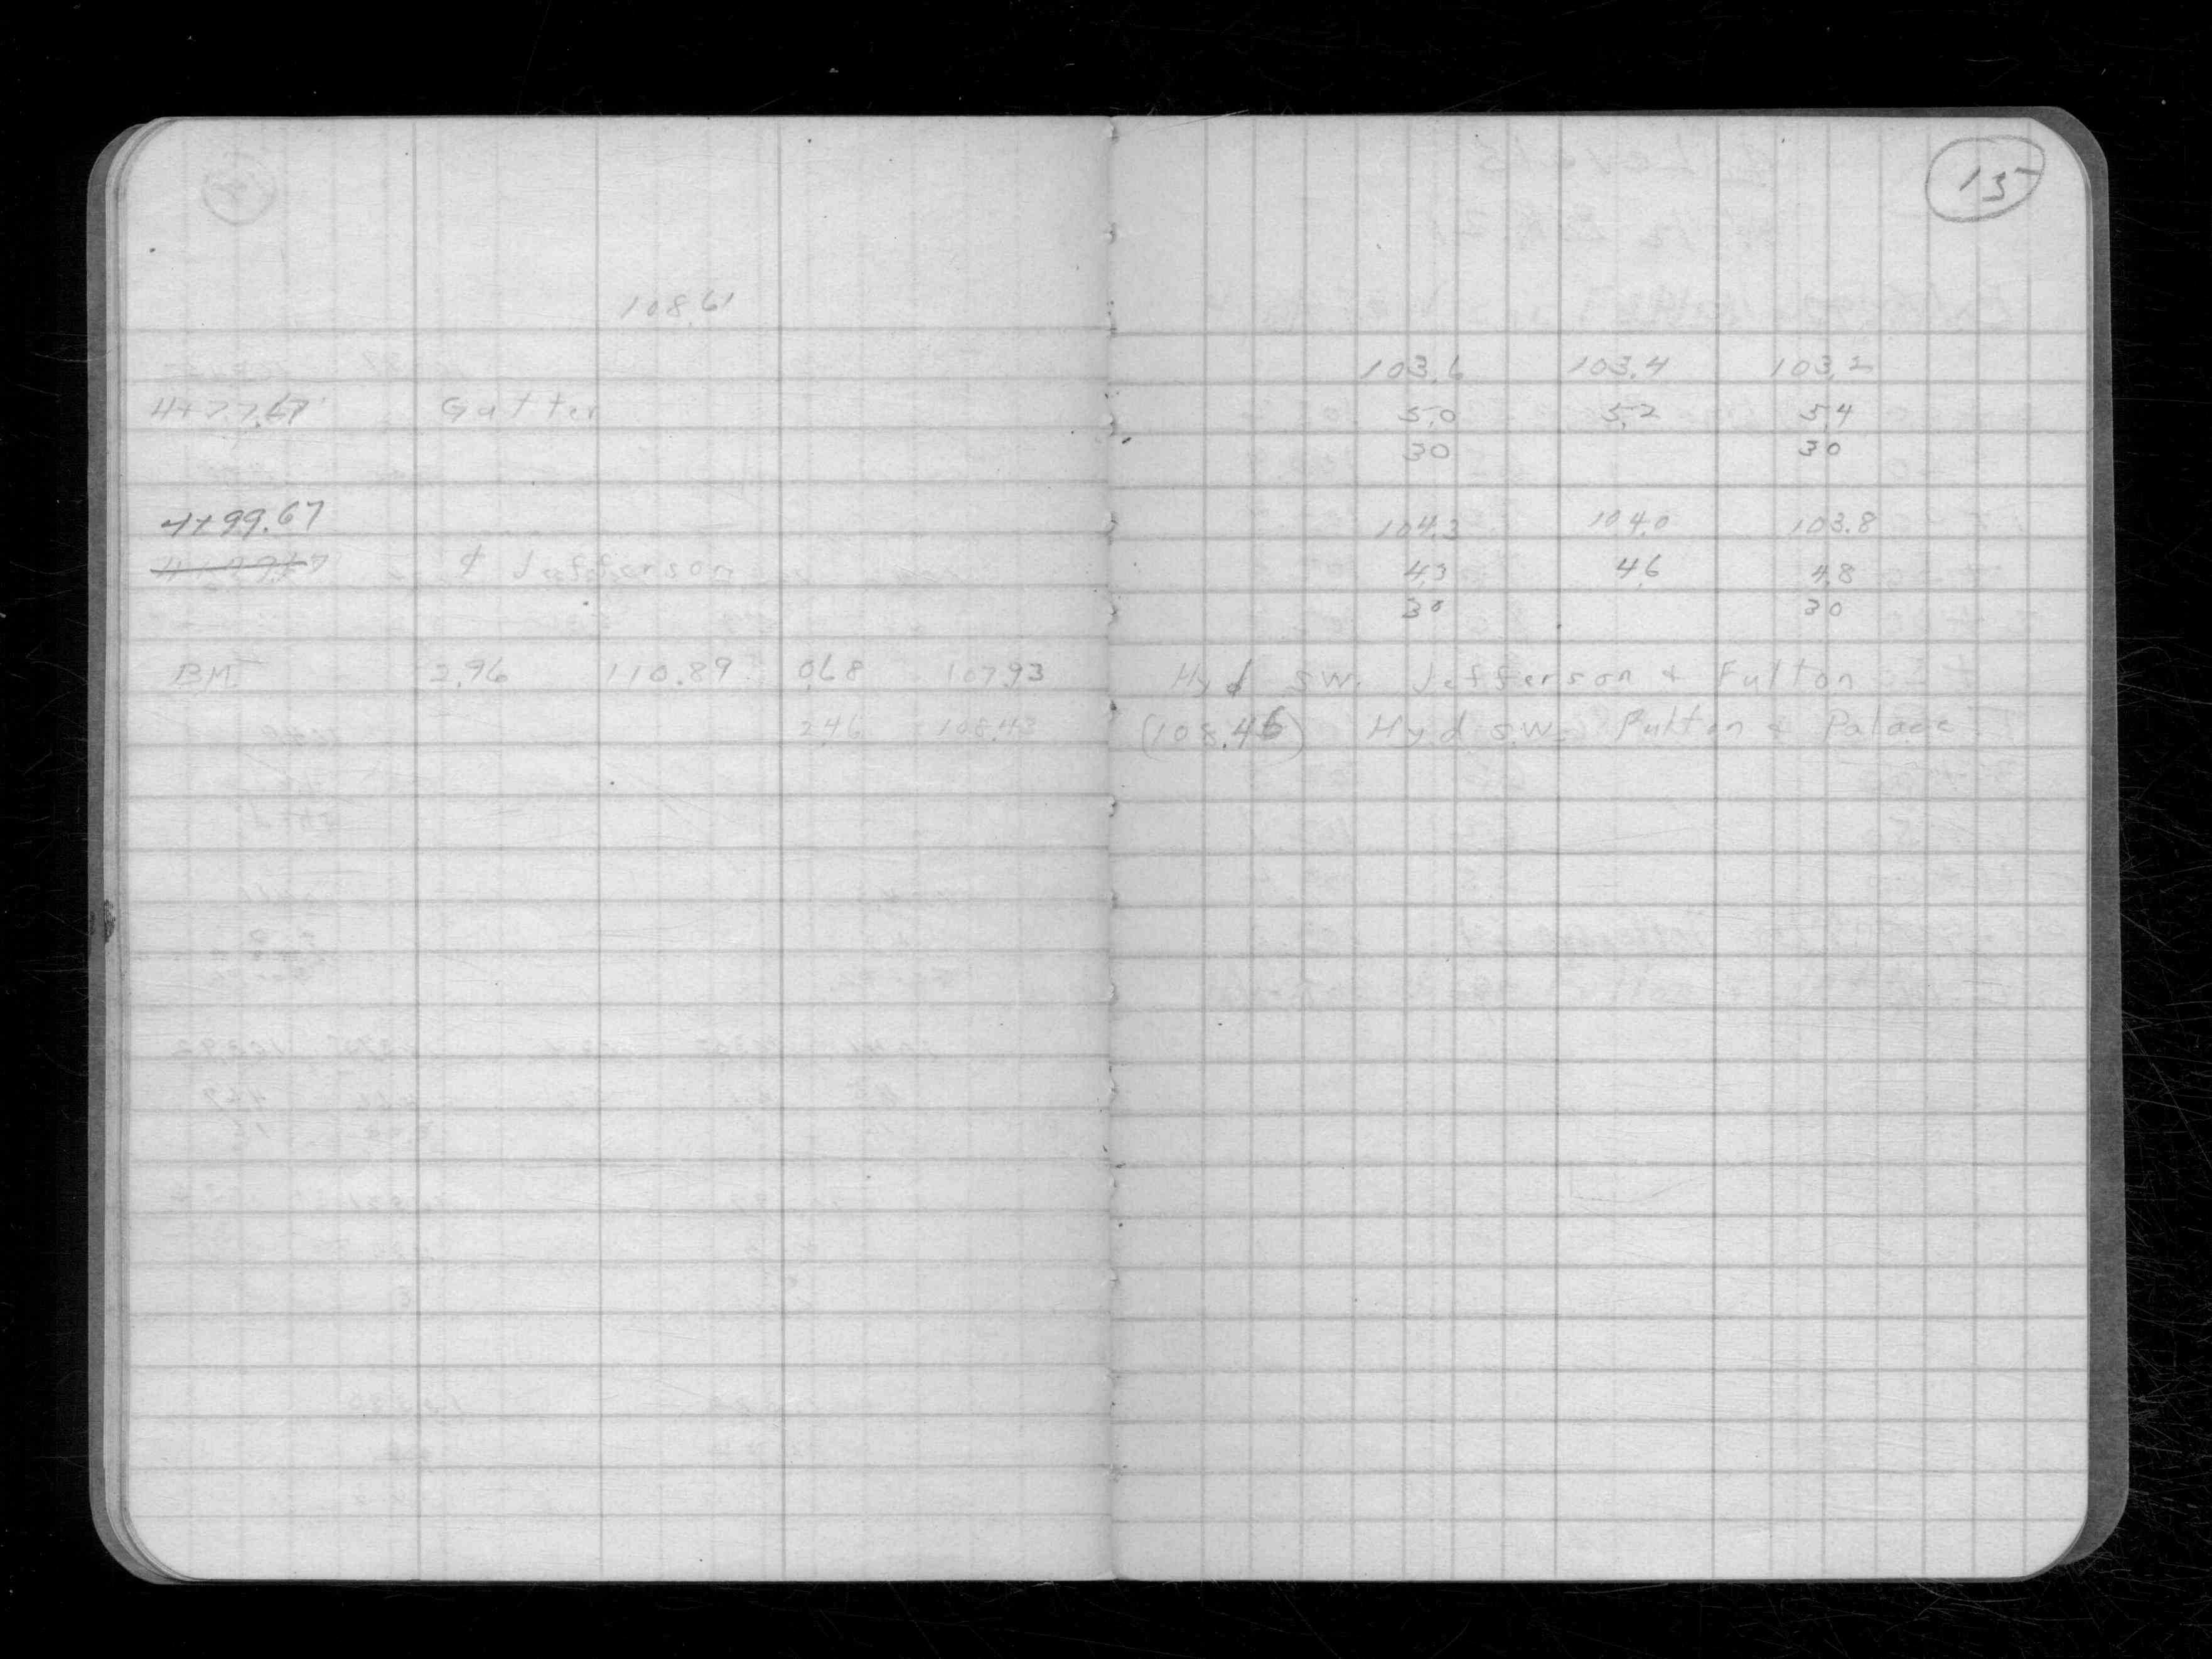 15
108.61
103.6 103.4 103.2
4+77.67 Gutter 5.0 5.2 5.4
30 30
4+99.67 104.3 104.0 103.8
¢ Jefferson 4.3 4.6 4.8
30 30
BM. 2.96 110.89 0.68 107.93 Hyd SW. Jefferson & Fulton
2.46 108.43 (108.46) Hyd SW. Fulton & Palace